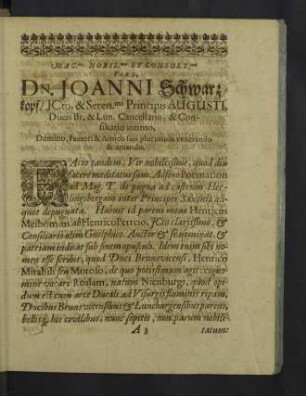 MAG.co NOBIL.mo ET CONSULT.mo
VIRO,
DN. JOANNI Schwartz-
kopf/ JCto, & Seren.mi Principis AUGUSTI,
Ducis Br. & Lun. Cancellario, & Con-
siliario intimo,
Domino, Fautori & Amico suo plurimum venerando
& amando.
FAcio tandem, Vir nobilissime, quod diu
facere meditatus sum. Adfero Poëmation
ad Mag. T. de pugna ad castrum Her-
lingsbergam inter Principes Saxoniæ ali-
quot depugnata. Habuit id parens meus Henricus
Meibomius ab Henrico Petreo, JCto clarissimo, &
Consiliario olim Guelphico. Auctor & se nominat, &
patriam indicat sub finem opusculi. Idem enim sibi no-
men esse scribit, quod Duci Brunsvicensi, Henrico
Mirabili seu Motoso, de quo potissimum agit: cogno-
minat vocare Roslam, natum Nienburgi, quod opi-
dum est cum arce Ducali ad Visurgis fluminis ripam,
Ducibus Brunsvicensibus & Lunæburgensibus parens,
bellis his civilibus, nunc sopitis, non parum nobili-
A 3 tatum: